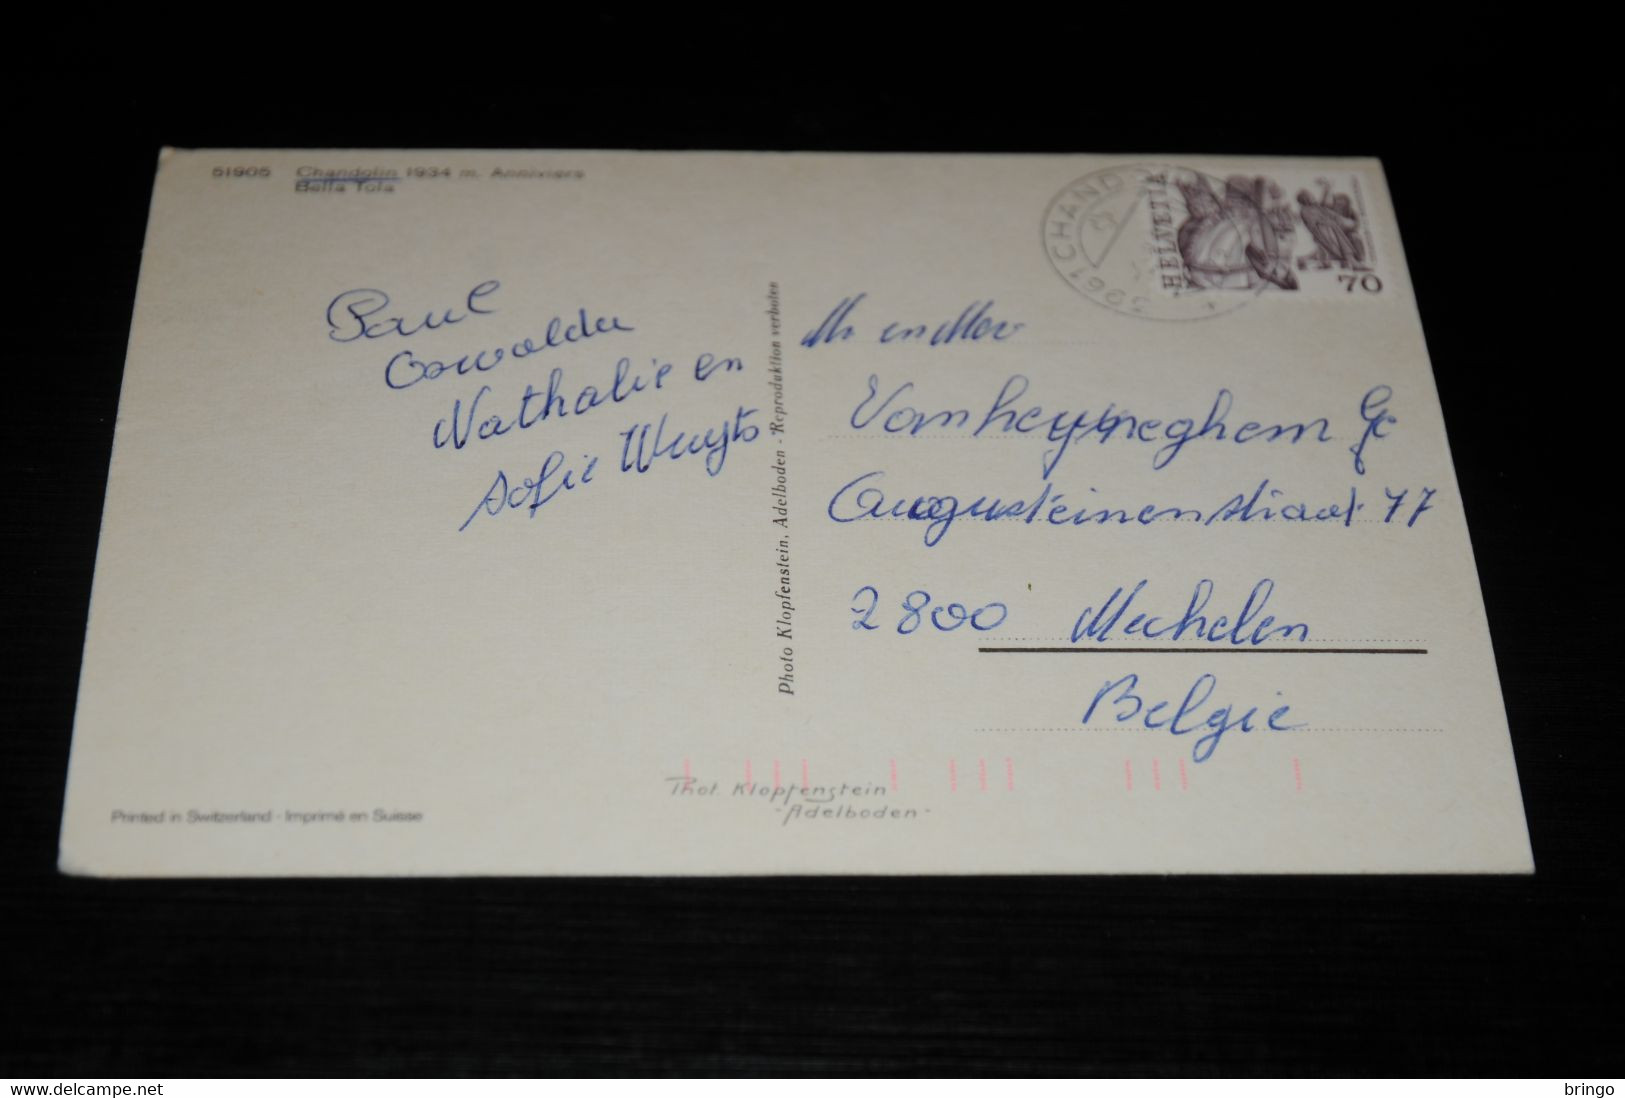 51905 Chandolin 1934 m. Anniviers
Bella Tola
3961 CHANDOLIN
HELVETIA
70
Paul
Oswalda
Nathalie en
Sofie Wuyts
Photo Klopfenstein, Adelboden - Reproduktion verboten
Mr en Mev
Vanheyneghem
Augusteinenstraat 77
2800 Mechelen
Belgie
Phot. Klopfenstein
- Adelboden -
Printed in Switzerland - Imprimé en Suisse
www.delcampe.net
bringo